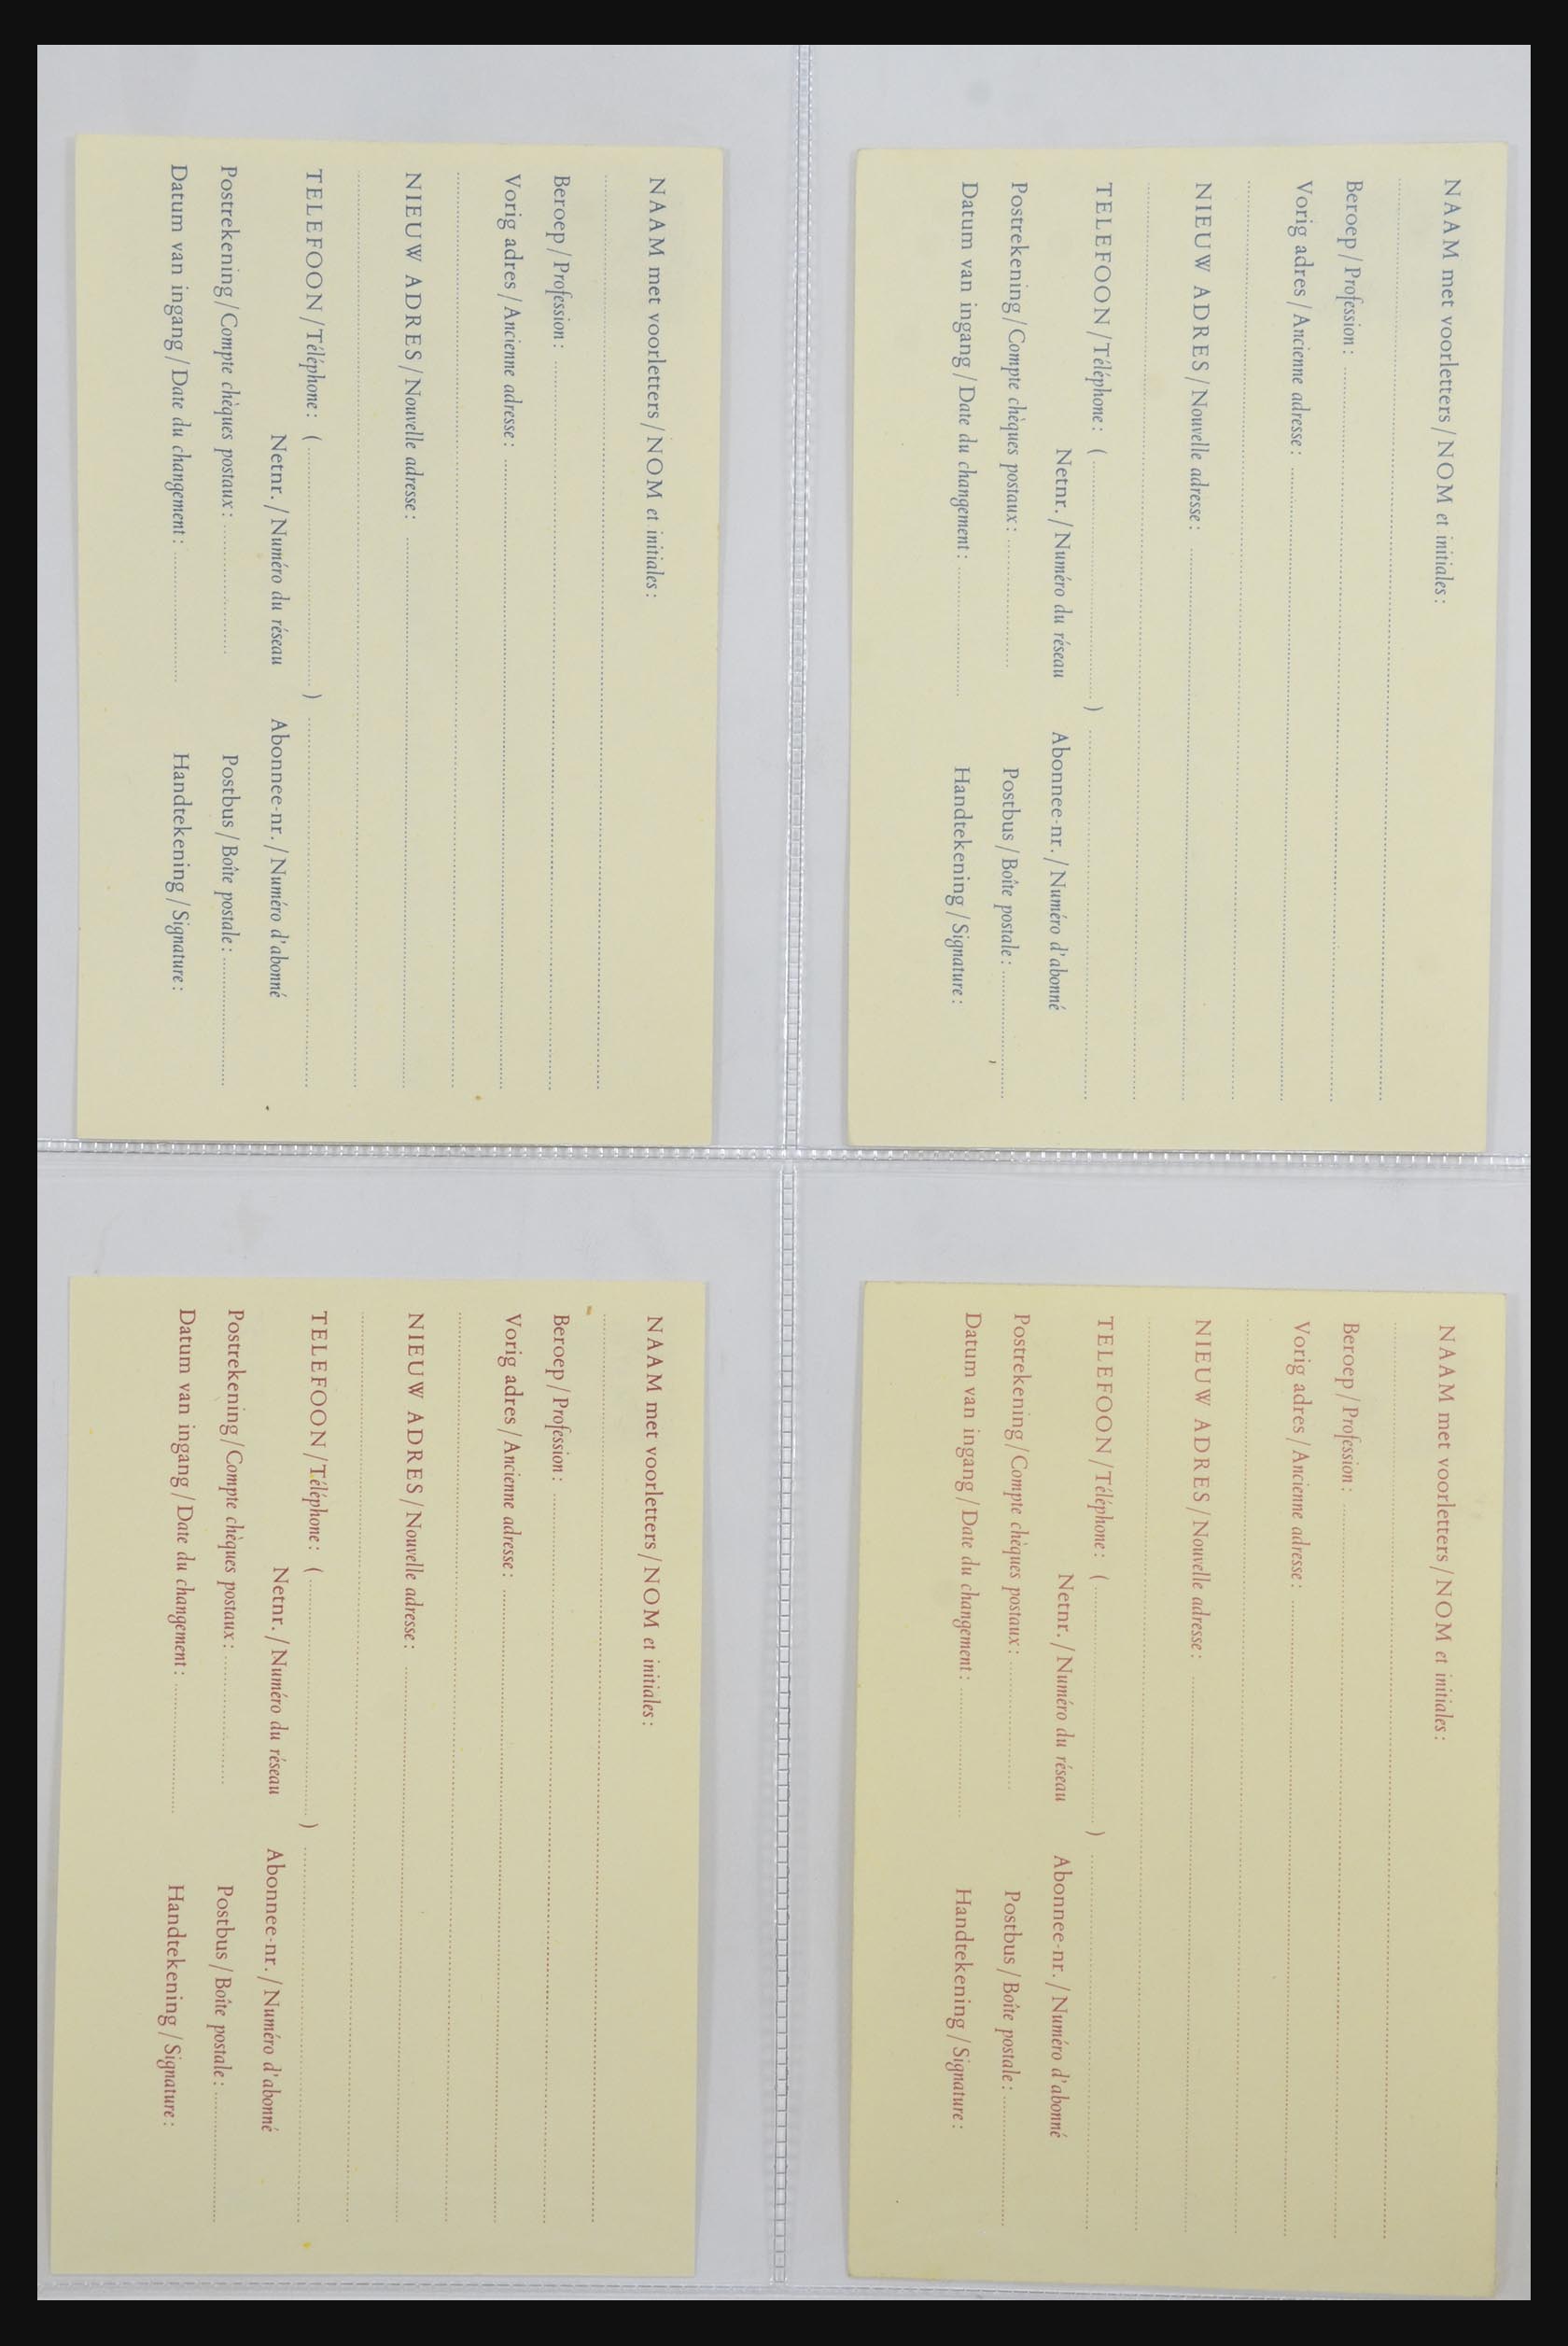 NAAM met voorletters/NOM et initiales:
Beroep/Profession:
Vorig adres/Ancienne adresse:
NIEUW ADRES/Nouvelle adresse:
TELEFOON/Téléphone: ( )
Netnr./Numéro du réseau Abonnee-nr./Numéro d'abonné
Postrekening/Compte chèques postaux: Postbus/Boîte postale:
Datum van ingang/Date du changement: Handtekening/Signature:
NAAM met voorletters/NOM et initiales:
Beroep/Profession:
Vorig adres/Ancienne adresse:
NIEUW ADRES/Nouvelle adresse:
TELEFOON/Téléphone: ( )
Netnr./Numéro du réseau Abonnee-nr./Numéro d'abonné
Postrekening/Compte chèques postaux: Postbus/Boîte postale:
Datum van ingang/Date du changement: Handtekening/Signature:
NAAM met voorletters/NOM et initiales:
Beroep/Profession:
Vorig adres/Ancienne adresse:
NIEUW ADRES/Nouvelle adresse:
TELEFOON/Téléphone: ( )
Netnr./Numéro du réseau Abonnee-nr./Numéro d'abonné
Postrekening/Compte chèques postaux: Postbus/Boîte postale:
Datum van ingang/Date du changement: Handtekening/Signature:
NAAM met voorletters/NOM et initiales:
Beroep/Profession:
Vorig adres/Ancienne adresse:
NIEUW ADRES/Nouvelle adresse:
TELEFOON/Téléphone: ( )
Netnr./Numéro du réseau Abonnee-nr./Numéro d'abonné
Postrekening/Compte chèques postaux: Postbus/Boîte postale:
Datum van ingang/Date du changement: Handtekening/Signature: